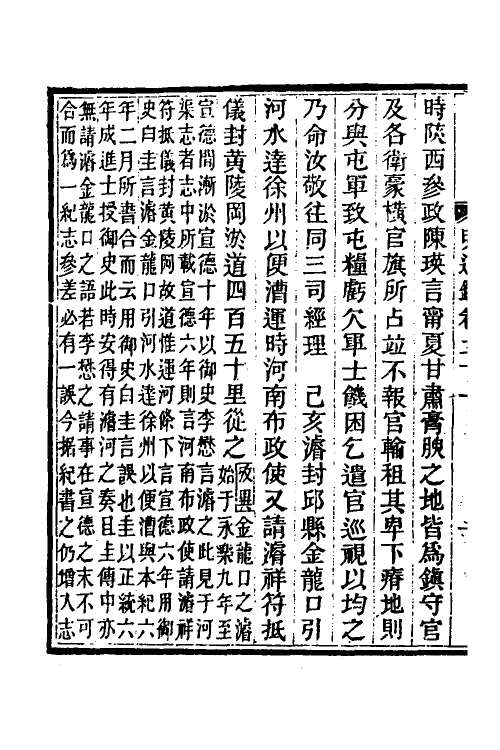 時陝西參政陳瑛言甯夏甘肅膏腴之地皆爲鎮守官
及各衛豪橫官旗所占竝不報官輸租其卑下瘠地則
分與屯軍致屯糧虧欠軍士饑困乞遣官巡視以均之
乃命汝敬往同三司經理　己亥濬封邱縣金龍口引
河水達徐州以便漕運時河南布政使又請濬祥符抵
儀封黃陵岡淤道四百五十里從之攷異金龍口之濬
始于永樂九年至
宣德間漸淤宣德十年以御史李懋言濬之此見于河
渠志者志中所載宣德六年則言河南布政使請濬祥
符抵儀封黃陵岡故道惟運河條下言宣德六年用御
史白圭言濬金龍口引河水達徐州以便漕與本紀六
年二月所書合而云用御史白圭言誤也圭以正統六
年成進士授御史此時安得有濬河之奏且圭傳中亦
無請濬金龍口之語若李懋之請事在宣德之末不可
合而爲一紀志參差必有一誤今據紀書之仍增入志